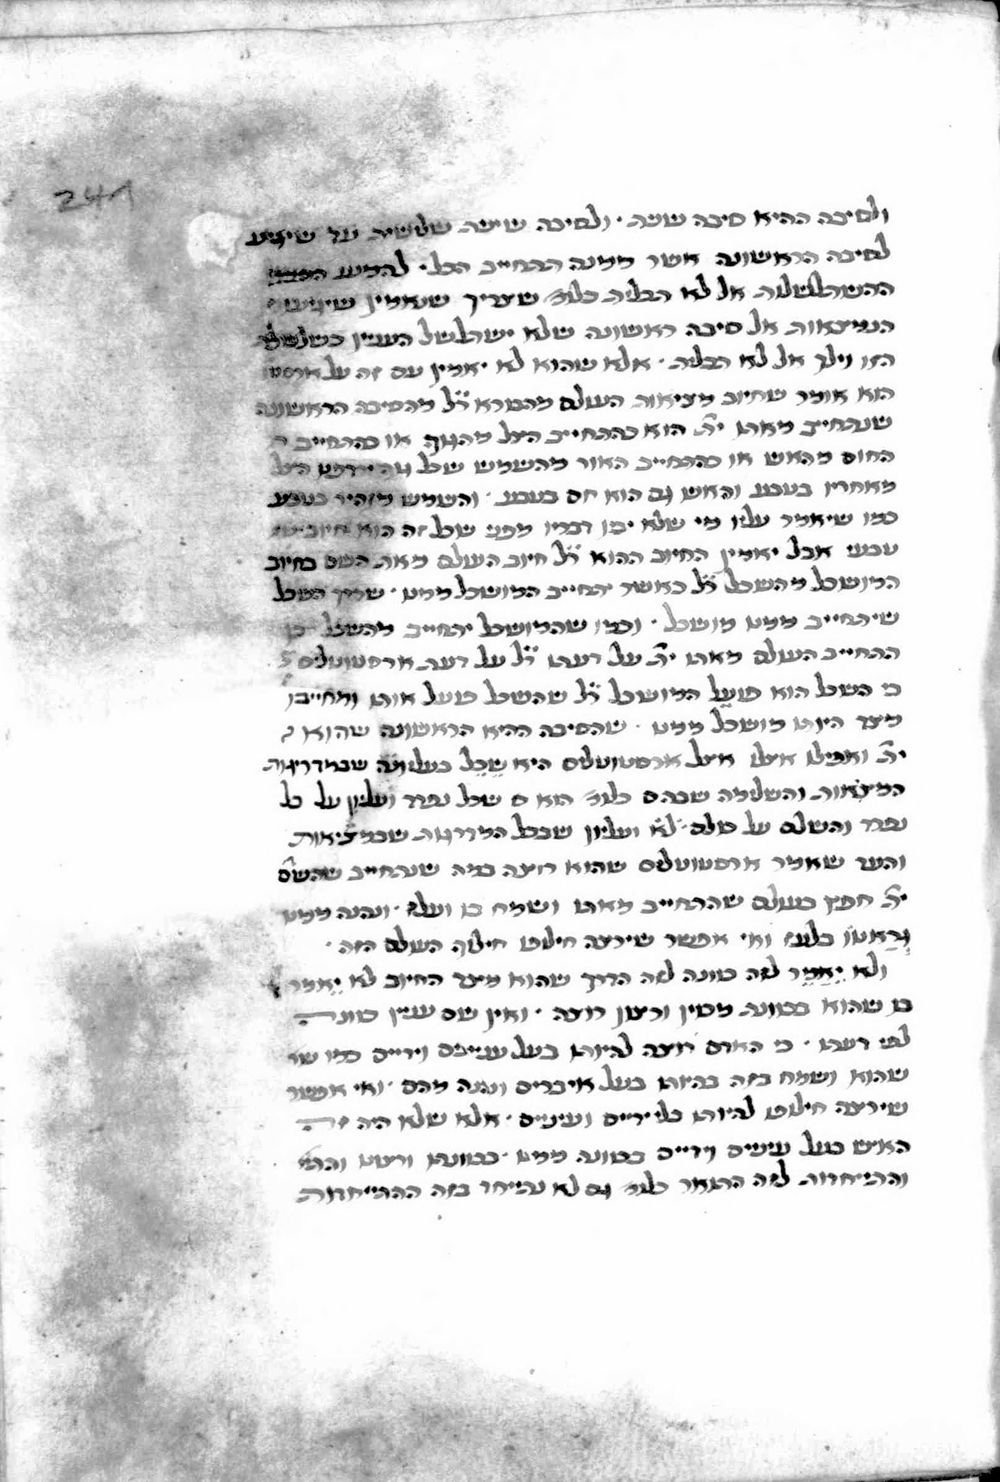 241
ולסיבה ההיא סיבה שנית · ולסיבה שנית שלישית עד שיגיע
לסיבה הראשונה אשר ממנה התחייב הכל · להמנע
ההשתלשלות אל לא תכלית כלו' שצריך שנאמין שיגיעו
הנמצאות אל סיבה ראשונה שלא ישתלשל הענין
הזה וילך אל לא תכלית · אלא שהוא לא יאמין עם זה על ארסטו
הוא אומר שחיוב מציאות העולם מהבורא ר"ל מהסיבה הראשונה
שנתחייב מאתו ית' הוא כהתחייב הצל מהגוף או כהתחייב
החום מהאש או כהתחייב האור מהשמש שכל גוף הצל
מאחריו בטבע והאש גם הוא חם בטבע · והשמש מזהיר בטבע
כמו שיאמר עליו מי שלא יבין דבריו מפני שכל זה הוא חיוב
טבעי אבל יאמין החיוב ההוא ר"ל חיוב העולם מאת השם כחיוב
המושכל מהשכל ר"ל כאשר יתחייב המושכל ממנו · שצריך השכל
שיתחייב ממנו מושכל · וכמו שהמושכל יתחייב מהשכל כן
התחייב העולם מאתו ית' על דעתו ר"ל על דעת ארסטוטליס
כי השכל הוא פועל המושכל ר"ל שהשכל פועל אותו ומחייבו
מצד היותו מושכל ממנו · שהסיבה ההיא הראשונה שהוא
ית' ואפילו אצלו אצל ארסטוטליס היא שכל בעליונה שבמדריגות
המציאות והשלימה שבהם כלו' הוא שכל נפרד ועליון על כל
נפרד והשלם על כולם ועליון שבכל המדרגות שבמציאות
והעד שאמר ארסטוטליס שהוא רוצה במה שנתחייב שהש"ם
ית' חפץ בעולם שהתחייב מאתו ושמח בו ועלז · ונהנה ממנו
בלע' ואי אפשר שירצה חילופו חילוף העולם הזה ·
ולא יאמר לזה כוונה לזה הדרך שהוא מצד החיוב לא יאמר
בו שהוא בכוונת מכוין ורצון רוצה · ואין שם ענין כוונה
לפי דעתו · כי האדם רוצה להיותו בעל עינים וידים כמו
שהוא ושמח בזה בהיותו בעל איברים ונהנה מהם · ואי אפשר
שירצה חילופו להיותו בלי ידים ועינים · אלא שלא היה זה
האיש בעל עינים וידים בכוונה ממנו · בכוונתו ורצונו
וההתיחדות לזה התואר כלו' גם לא נתייחד בזה ההתייחדות